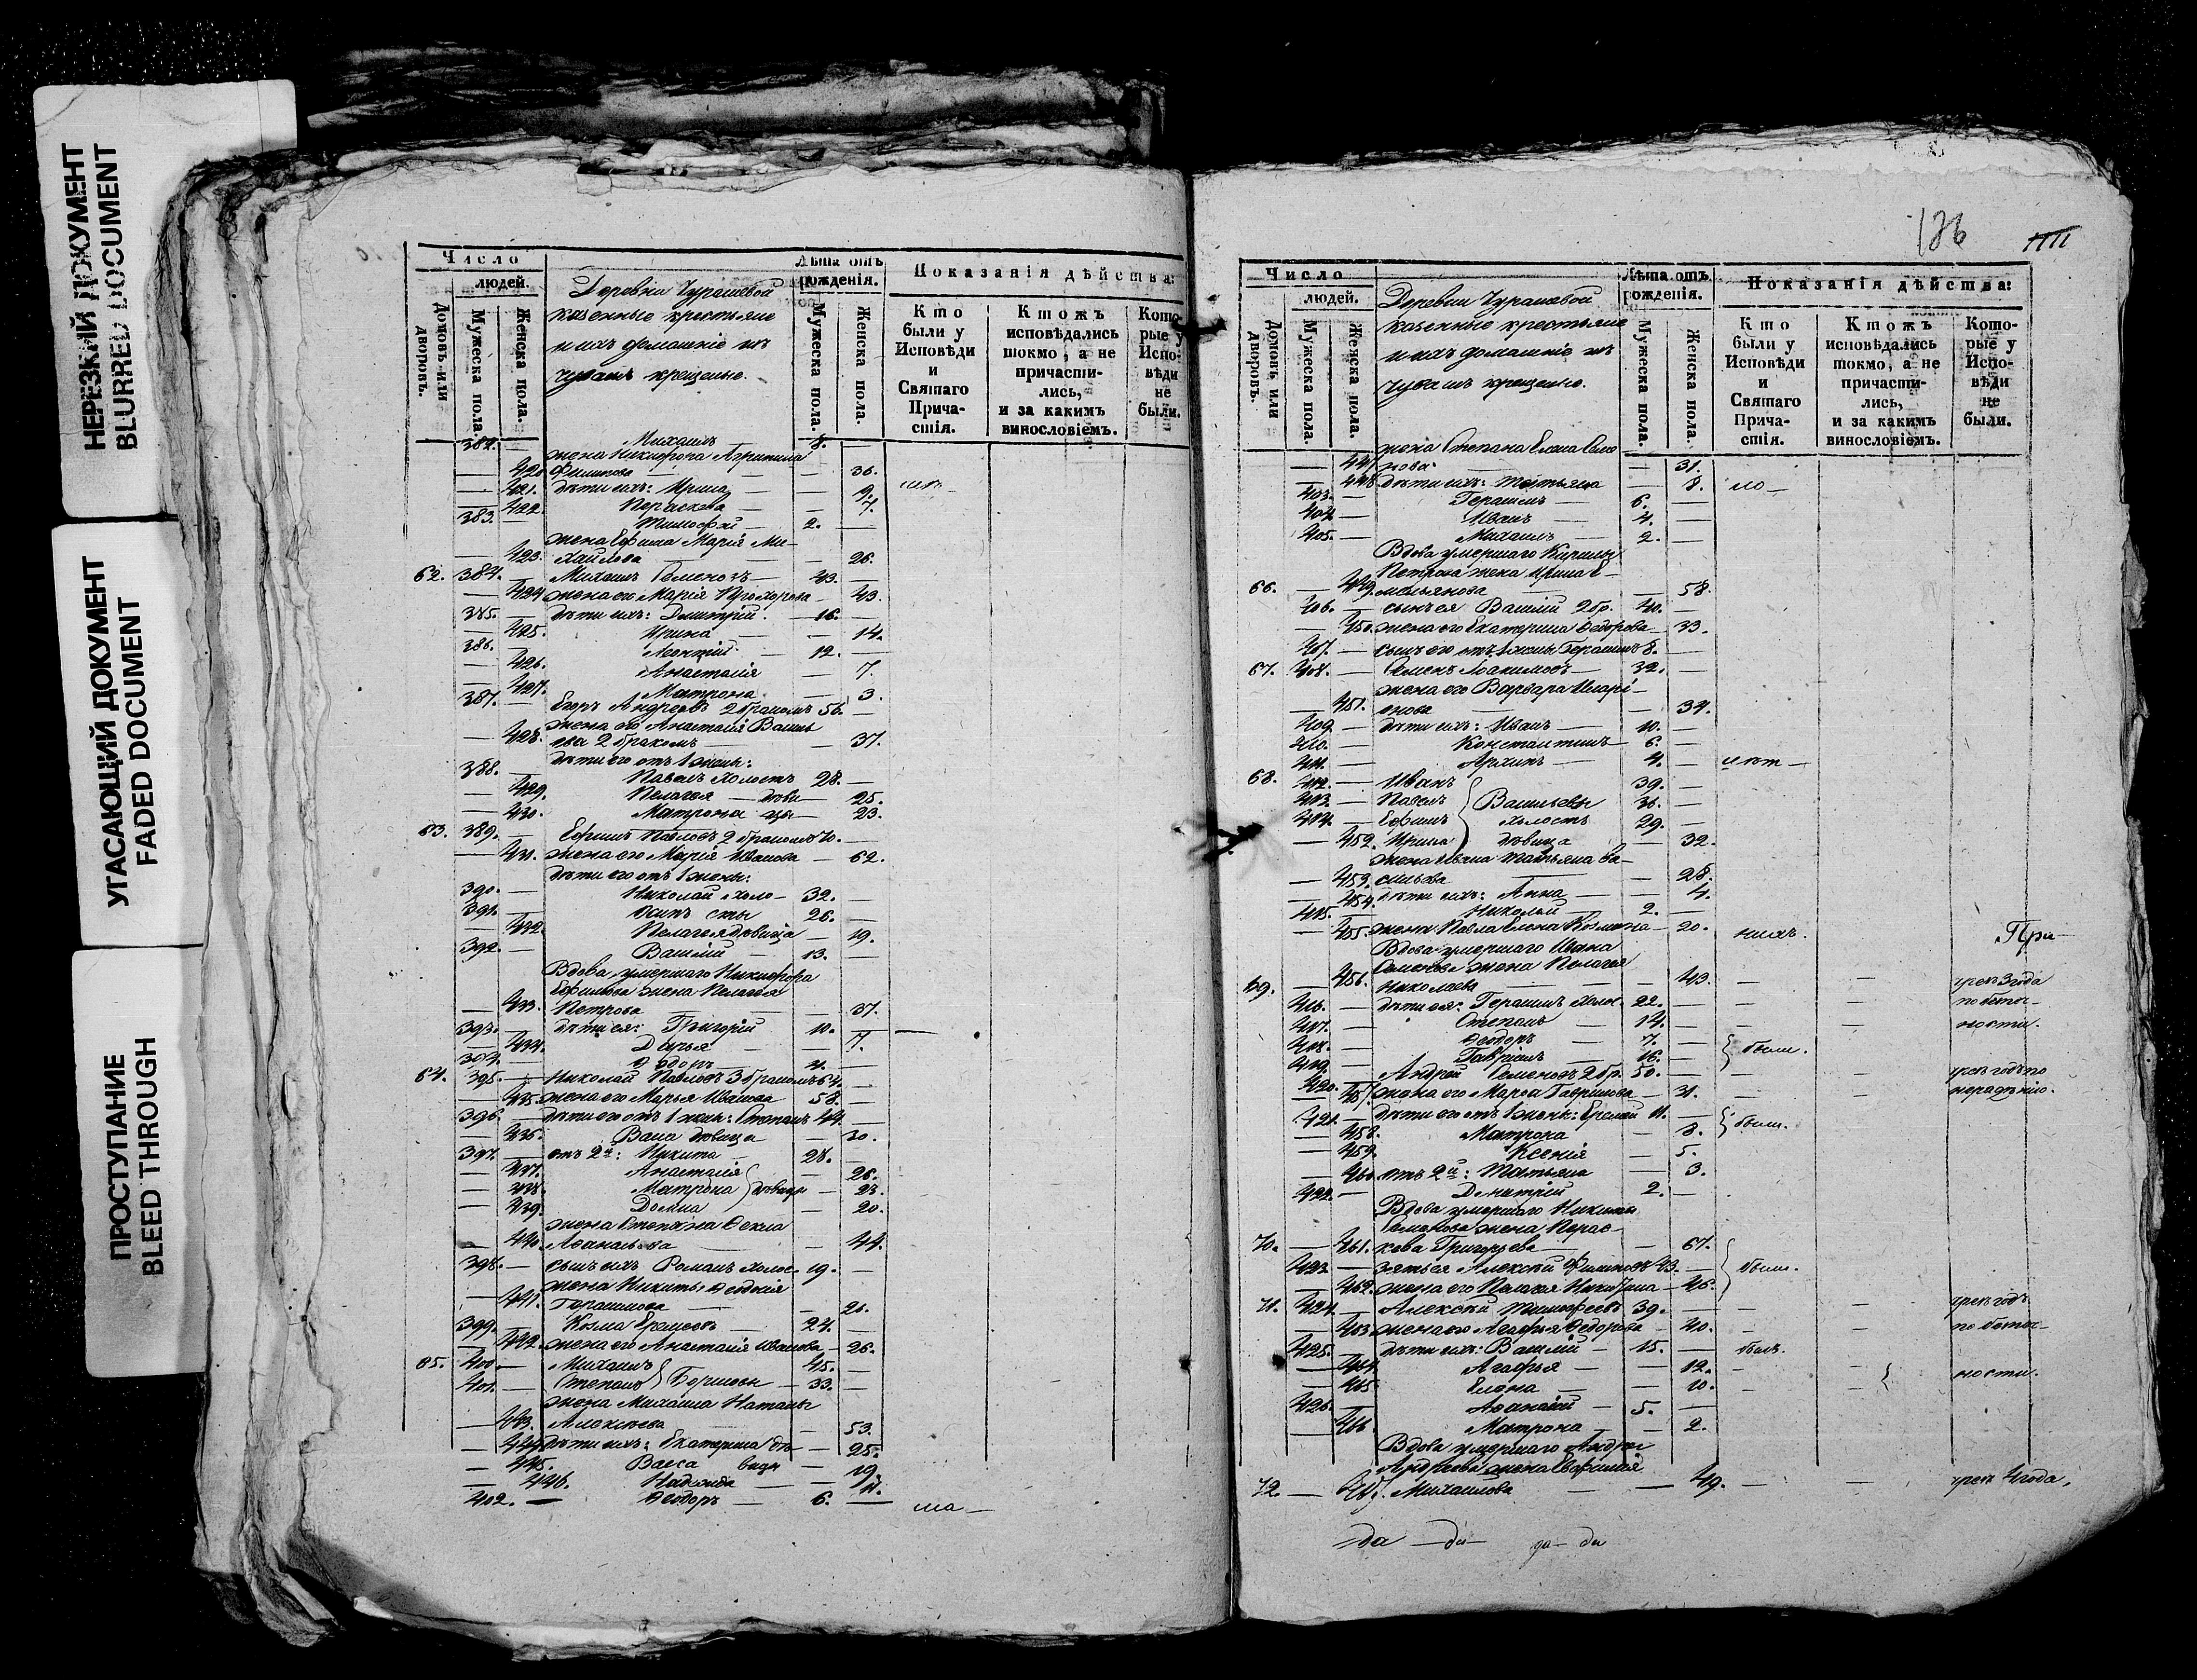 НЕРЕЗКИЙ ДОКУМЕНТ
BLURRED DOCUMENT
УГАСАЮЩИЙ ДОКУМЕНТ
FADED DOCUMENT
ПРОСТУПАНИЕ
BLEED THROUGH
Число
людей.
Домовъ или дворовъ.
Мужеска пола.
Женска пола.
Деревни Чурашевой
казенные крестьяне
и ихъ домашніе изъ
чувашъ крещеные.
Лѣта отъ рожденія.
Мужеска пола.
Женска пола.
Показанія дѣйства:
Кто были у Исповѣди и Святаго Причастія.
Ктожъ исповѣдались токмо, а не причастились, и за какимъ винословіемъ.
Которые у Исповѣди не были.
382. — Михаилъ — 8.
жена Никифора Агрипина
— 420. Филипова — 36.
— 421. дѣти ихъ: Ирина — 9.
— 422. Пераскева — 7.
383. — Тимофей — 2. —
жена Ефима Марія Ми-
— 423. хайлова — 26.
62. 384. — Михаилъ Семеновъ — 43. —
— 424. жена его Марія Прохорова — 43.
385. дѣти ихъ: Димитрій. — 16. —
— 425. Ирина — 14.
386. — Леонтій — 12. —
— 426. Анастасія — 7.
— 427. Матрона — 3.
387. — Егоръ Андреевъ 2 бракомъ 56. —
жена его Анастасія Василь
— 428. ева 2 бракомъ — 37.
дѣти его отъ 1 жены:
388. — Павелъ холостъ 28. —
— 429. Пелагея — дѣви — 25.
— 430. Матрона цы — 23.
63. 389. — Ефимъ Павловъ 2 бракомъ 70. —
— 431. жена его Марія Иванова — 62.
дѣти его отъ 1 жены:
390. — Николай холо- 32. —
391. — Осипъ сты 26. —
— 432. Пелагея дѣвица — 19.
392. — Василій — 13. —
Вдова умершаго Никифора
Ефимова жена Пелагея
— 433. Петрова — 37.
393. — дѣти ея: Григорій — 10. —
— 434. Дарья — 7.
394. — Ѳедоръ — 4. —
64. 395. — Николай Павловъ 3 бракомъ 64. —
— 435. жена его Марья Иванова 58. —
396. дѣти его отъ 1 жены: Степанъ 44. —
— 436. Васа дѣвица — 30.
397. — отъ 2й: Никита — 28. —
— 437. Анастасія — 26.
— 438. Матрона дѣвицы — 23.
— 439. Домна — 20.
жена Степана Ѳекла
— 440. Аѳанасьева — 44.
398. — сынъ ихъ Романъ холос. 19. —
жена Никиты Ѳедосія
— 441. Герасимова — 26.
399. — Козма Еремеевъ — 24. —
— 442. жена его Анастасія Иванова — 26.
65. 400. — Михаилъ 45. —
401. — Степанъ — 33. —
жена Михаила Наталья
— 443. Алексѣева — 53.
— 444. дѣти ихъ: Екатерина дѣ — 25.
— 445. Васса вицы — 19.
— 446. Надежда —
402. — Ѳеодоръ — 6. —
186
Число
людей.
Домовъ или дворовъ.
Мужеска пола.
Женска пола.
Деревни Чурашевой
казенные крестьяне
и ихъ домашніе изъ
чувашъ крещеные.
Лѣта отъ рожденія.
Мужеска пола.
Женска пола.
Показанія дѣйства:
Кто были у Исповѣди и Святаго Причастія.
Ктожъ исповѣдались токмо, а не причастились, и за какимъ винословіемъ.
Которые у Исповѣди не были.
жена Степана Елена Семе
— 447. нова — 31.
— 448. дѣти ихъ: Татьяна — 8.
403. — Герасимъ — 6. —
404. — Иванъ — 4. —
405. — Михаилъ — 2. —
Вдова умершаго Кирилы
Петрова жена Ирина Е-
66. — 449. мельянова — 58.
406. — сынъ ея Василій 2 бр. 40. —
— 450. жена его Екатерина Ѳедорова — 33.
407. — сынъ его отъ 1 жены Герасимъ 8. —
67. 408. — Семенъ Іоакимовъ — 32. —
жена его Варвара Илларі-
— 451. онова — 34.
409. — дѣти ихъ: Иванъ — 10. —
410. — Константинъ — 6. —
411. — Архипъ — 4. —
68. 412. — Иванъ 39. —
413. — Павелъ Васильевы 36. —
414. — Ефимъ холостъ 29. —
— 452. Ирина дѣвица — 32.
жена Ивана Татьяна Ва-
— 453. сильева — 28.
— 454. дѣти ихъ: Анна — 4.
415. — Николай — 2. —
— 455. жена Павла Елена Козмина — 20.
Вдова умершаго Ивана
Семенова жена Пелагея
69. — 456. Николаева — 43. — — чрезъ 3 года
416. — дѣти ея: Герасимъ холос. 22. —
417. — Степанъ — 14. — — — ности.
418. — Ѳеодоръ — 7. —
419. — Гавріилъ — 16. — были.
420. — Андрей Семеновъ 2 бр. 50. —
— 457. жена его Марѳа Гаврилова — 31. нерадѣнію.
421. — дѣти его отъ 1 жены: Еремей 11. — были.
— 458. Матрона — 8.
— 459. Ксенія — 5.
— 460. отъ 2й: Татьяна — 3.
422. — Димитрій 2. —
Вдова умершаго Никиты
Семенова жена Перас-
70. — 461. кева Григорьева — 67.
423. — зять ея Алексѣй Филиповъ 43. — были.
— 462. жена его Пелагея Никитина — 45.
71. 424. — Алексѣй Тимофеевъ 39. —
— 463. жена его Агафья Ѳедорова — 40.
425. — дѣти ихъ: Василій — 15. — былъ.
— 464. Агафья — 12.
— 465. Елена — 10. ности.
426. — Аѳанасій — 5. —
— 466. Матрона — 2.
Вдова умершаго Андрея
Андреева жена Евфимія
72. — 467. Михаилова — 49. — — чрезъ 4 года,
При-
да — да — да — да